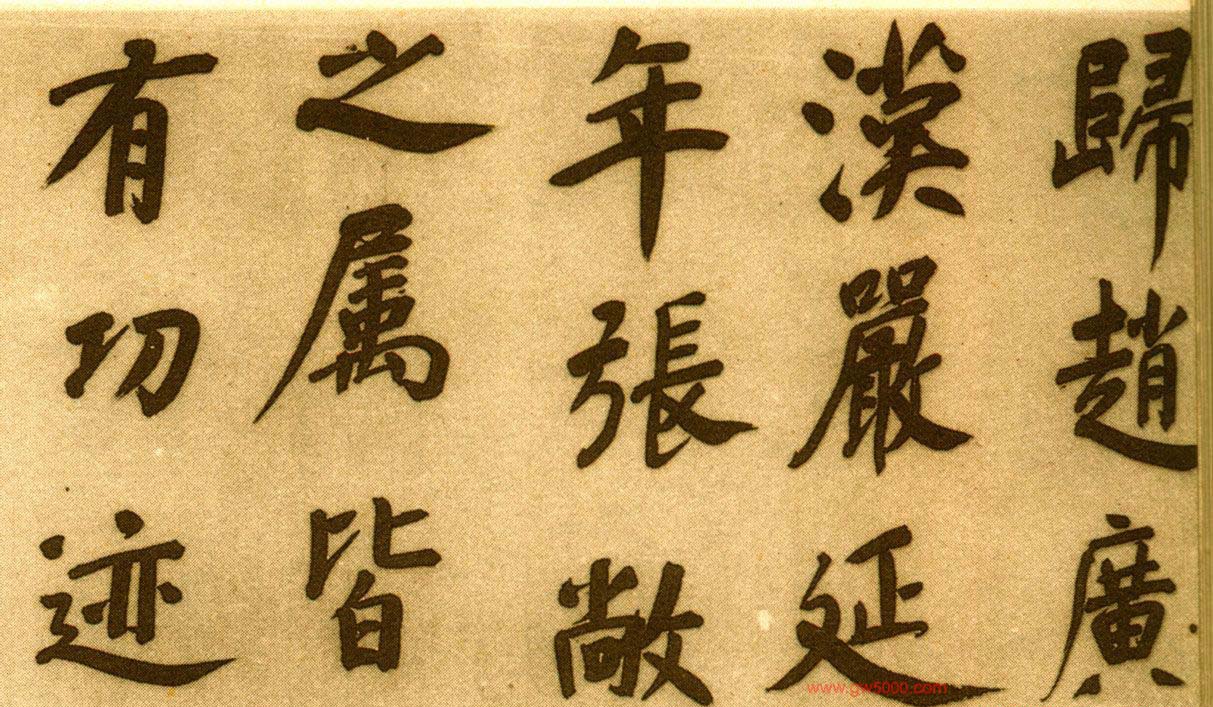 歸趙廣
漢嚴延
年張敞
之属皆
有功迹
www.gw5000.com